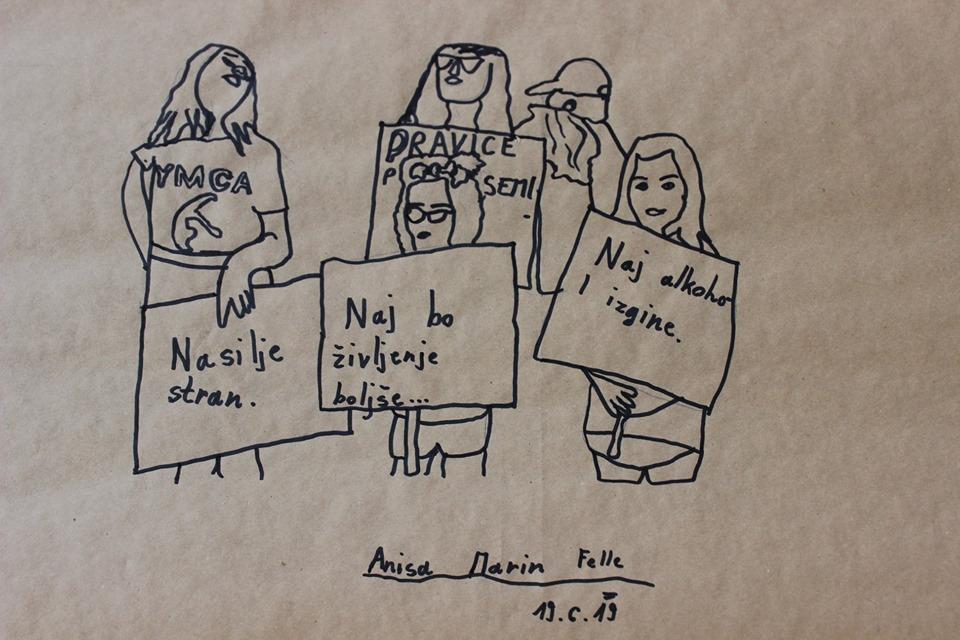 YMCA
Nasilje
stran.
PRAVICE
P SEM
Naj bo
življenje
boljše...
Naj alkoho
l izgine.
Anisa Marin Felle
19.6.19